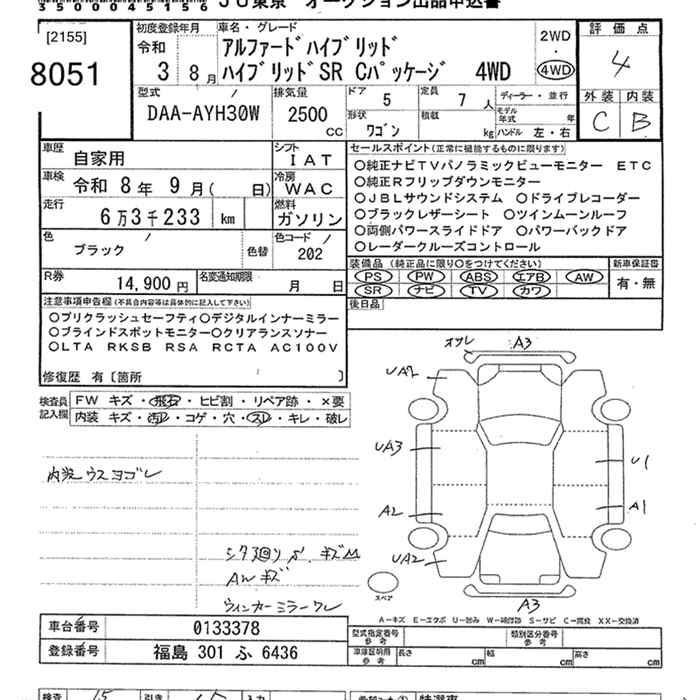 3500045156
JU東京 オークション出品申込書
[2155]
8051
初度登録年月
令和
3 8月
車名・グレード
アルファードハイブリッド
ハイブリッドSR Cパッケージ 4WD
2WD
4WD
評価点
4
外装 内装
C B
型式
DAA-AYH30W
排気量
2500
CC
ドア 5
定員 7 人
形状
ワゴン
積載
kg
ディーラー・並行
モデル年式 年
ハンドル 左・右
車歴
自家用
シフト
IAT
車検
令和 8年 9月( 日)
冷房
WAC
走行
6万3千233 km
燃料
ガソリン
色
ブラック
色替
色コード
202
R券
14,900円
名変通知期限
月 日
セールスポイント(正常に機能するものに限ります)
○純正ナビTVパノラミックビューモニター ETC
○純正Rフリップダウンモニター
○JBLサウンドシステム ○ドライブレコーダー
○ブラックレザーシート ○ツインムーンルーフ
○両側パワースライドドア ○パワーバックドア
○レーダークルーズコントロール
装備品(純正品に限り○をつけてください)
PS PW ABS エアB AW
SR ナビ TV カワ
新車保証書
有・無
後日品
注意事項申告欄(不具合内容等は具体的に記入して下さい)
○プリクラッシュセーフティ○デジタルインナーミラー
○ブラインドスポットモニター○クリアランスソナー
○LTA RKSB RSA RCTA AC100V
修復歴 有[箇所 ]
検査員記入欄
FW キズ・飛石・ヒビ割・リペア跡・×要
内装 キズ・汚レ・コゲ・穴・スレ・キレ・破レ
内装ウスヨゴレ
シタ廻りサ、キズM
AWキズ
ウィンカーミラーワレ
オサレ A3
UA2
UA3
A2
UA2
U1
A1
A3
スペア
A-キズ E-エクボ U-凹み W-補修跡 S-サビ C-腐蝕 XX-交換済
車台番号 0133378
登録番号 福島 301 ふ 6436
型式指定番号 参考
類別区分番号 参考
車庫証明用 参考
長さ cm 幅 cm 高さ cm